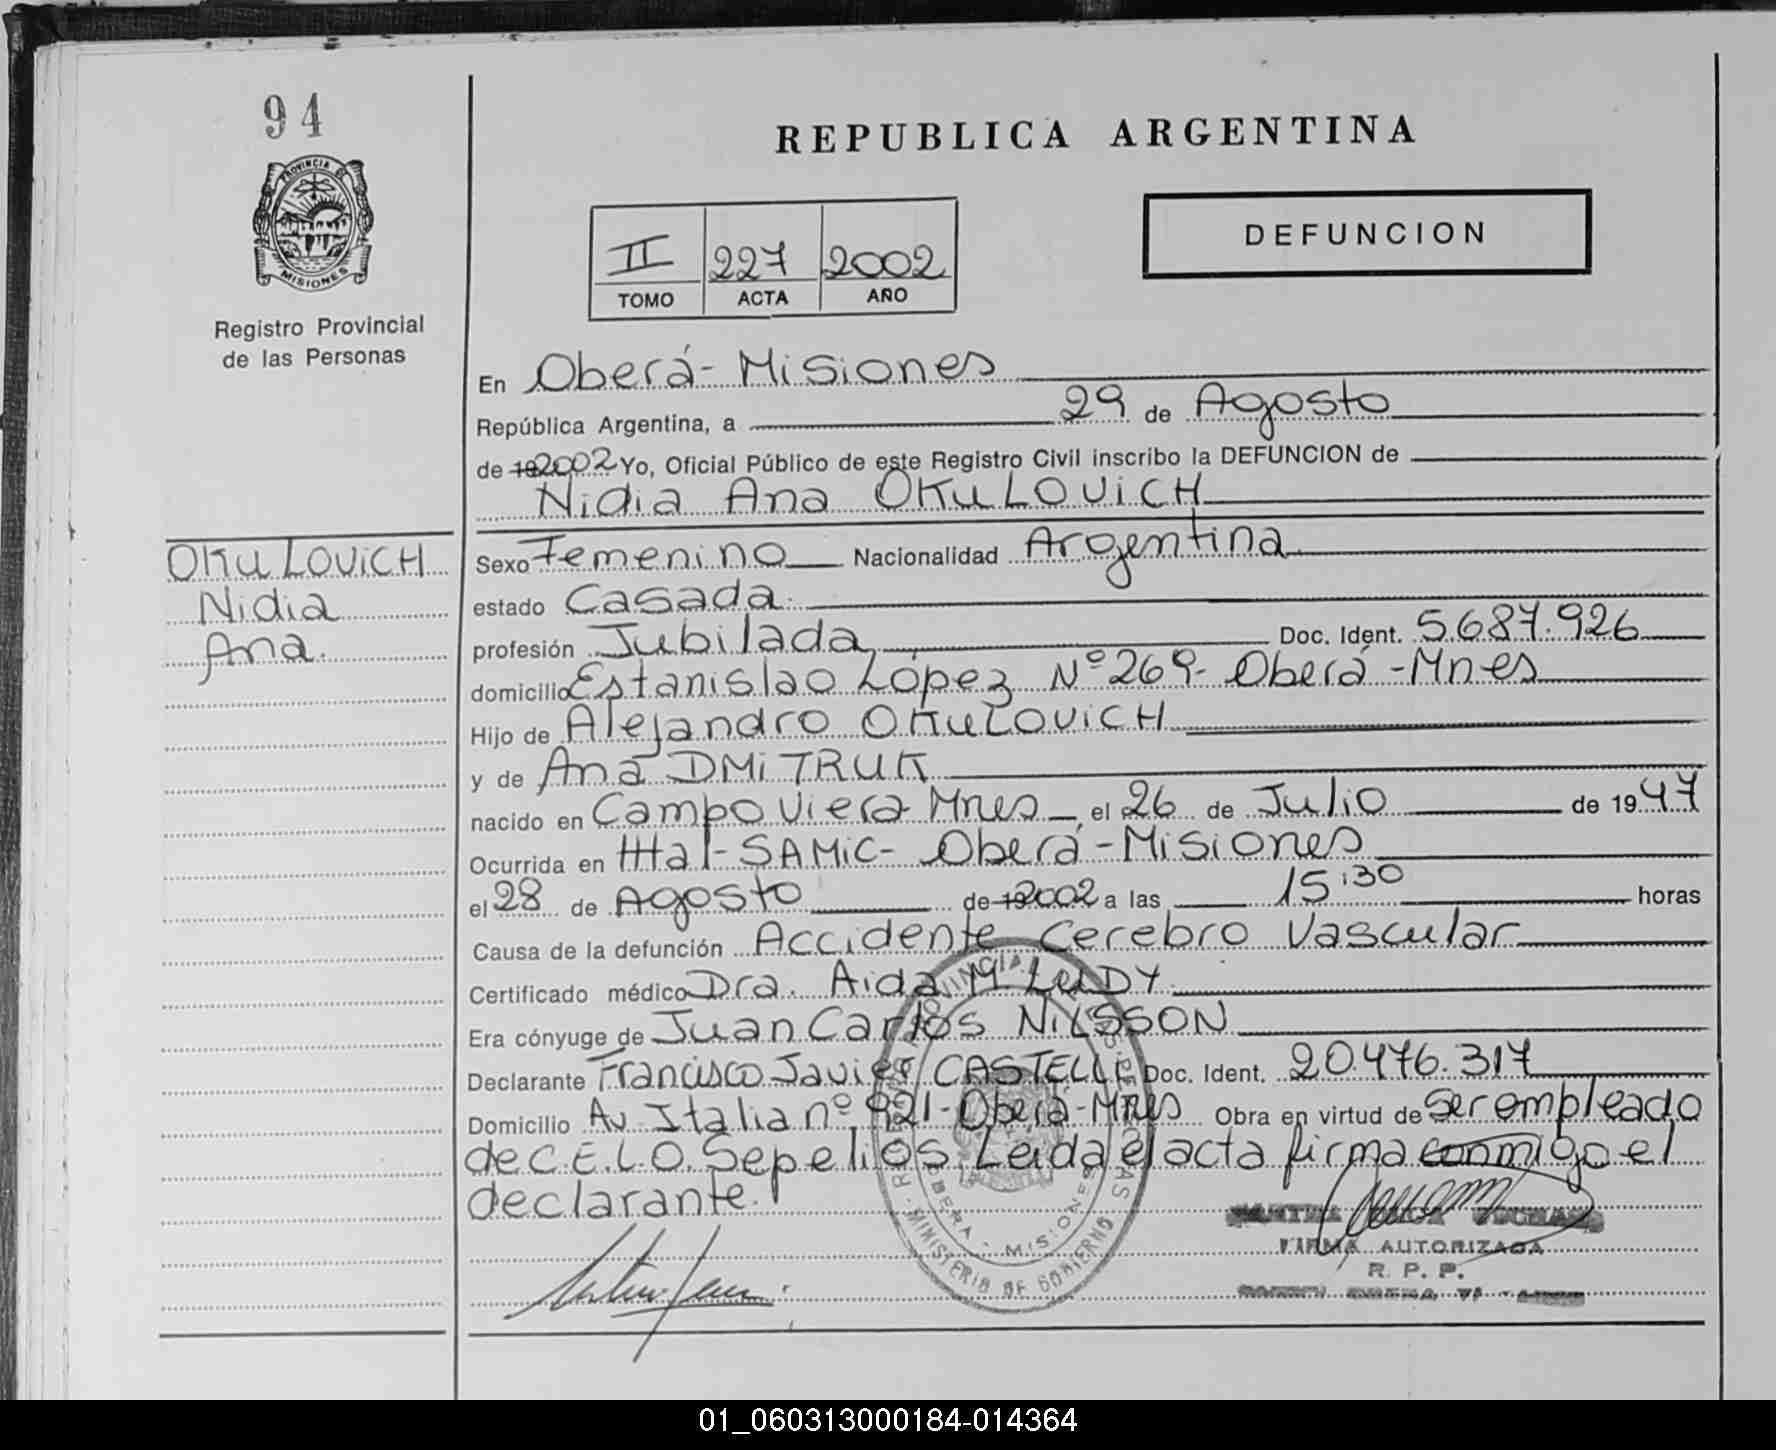 94
REPUBLICA ARGENTINA
PROVINCIA DE
MISIONES
Registro Provincial
de las Personas
II 227 2002
TOMO ACTA AÑO
DEFUNCION
En Oberá - Misiones
República Argentina, a 29 de Agosto
de 19 2002 Yo, Oficial Público de este Registro Civil inscribo la DEFUNCION de
Nidia Ana OKULOVICH
OKULOVICH
Nidia
Ana.
Sexo Femenino Nacionalidad Argentina
estado Casada.
profesión Jubilada Doc. Ident. 5.687.926
domicilio Estanislao López Nº 269 - Oberá - Mnes
Hijo de Alejandro OKULOVICH
y de Ana DMITRUK
nacido en Campo Viera Mnes, el 26 de Julio de 1947
Ocurrida en Htal - SAMIC - Oberá - Misiones
el 28 de Agosto de 19 2002 a las 15:30 horas
Causa de la defunción Accidente Cerebro Vascular
Certificado médico Dra. Aida M.
Era cónyuge de Juan Carlos NILSSON
Declarante Francisco Javier CASTELLI Doc. Ident. 20.476.317
Domicilio Av. Italia nº 921 - Oberá - Mnes Obra en virtud de Ser empleado
de C.E.L.O. Sepelios Leida el acta firma conmigo el
declarante.
FIRMA AUTORIZADA
R. P. P.
MINISTERIO DE GOBIERNO
OBERA - MISIONES
01_060313000184-014364